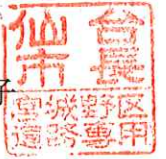 仙台
市長
宮城野区
道路専用